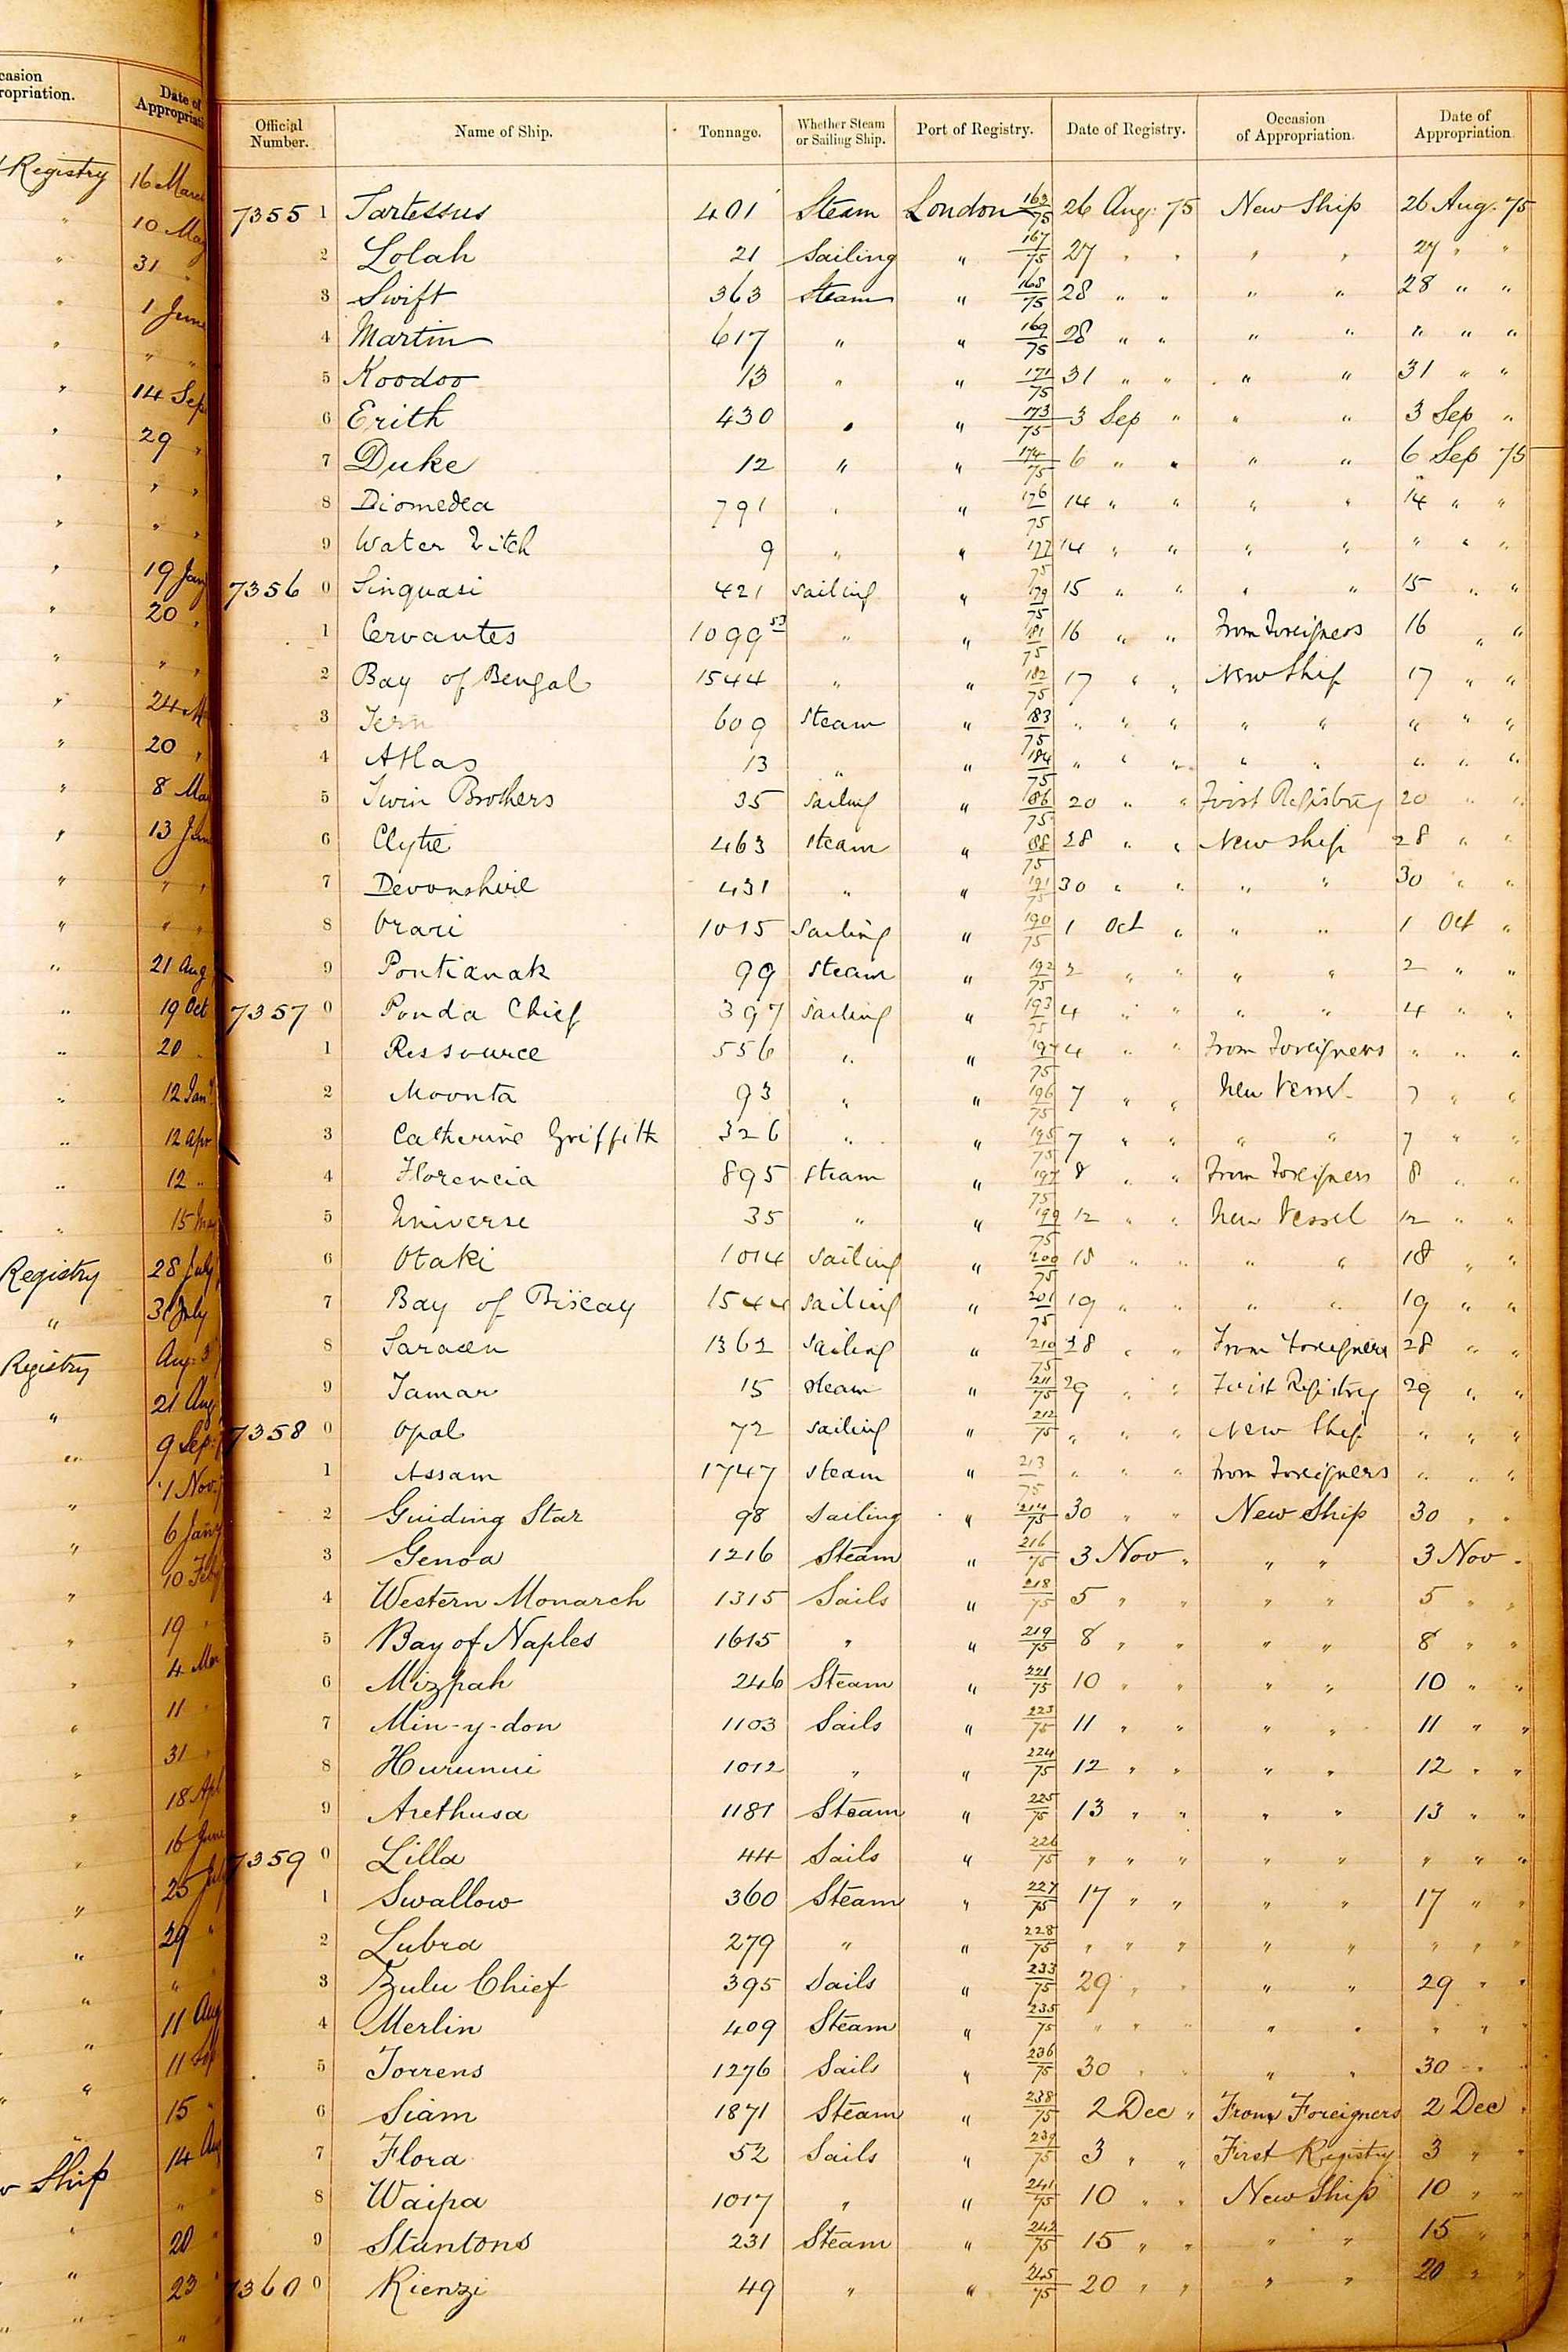 casion
ropriation.
Date of
Appropriati
Registry 16 March
" 10 May
" 31 "
" 1 June
" " "
" 14 Sep
" 29 "
" " "
" " "
" 19 Jan
" 20 "
" " "
" 24 M
" 20 "
" 8 Ma
" 13 Jun
" " "
" " "
" 21 Aug
" 19 Oct
" 20 "
" 12 Jan
" 12 Apr
" 12 "
" 15 May
Registry 28 July
" 31 July
Registry Aug 3
" 21 Aug
" 9 Sep
" 1 Nov
" 6 Jany
" 10 Feb
" 19 "
" 4 Mar
" 11 "
" 31 "
" 18 Apl
" 16 June
" 25 July
" 29 "
" "
" 11 Aug
" 11
" 15 "
Ship 14 Au
" "
" 20 "
" 23 "
" "
Official Number. Name of Ship. Tonnage. Whether Steam or Sailing Ship. Port of Registry. Date of Registry. Occasion of Appropriation. Date of Appropriation.
7355 1 Tartessus 401 Steam London 163/75 26 Aug: 75 New Ship 26 Aug. 75
2 Lolah 21 Sailing " 167/75 27 " " " " 27 " "
3 Swift 363 Steam " 168/75 28 " " " " 28 " "
4 Martin 617 " " 169/75 28 " " " " " " "
5 Koodoo 13 " " 171/75 31 " " " " 31 " "
6 Erith 430 " " 173/75 3 Sep " " " 3 Sep "
7 Duke 12 " " 174/75 6 " " " " 6 Sep 75
8 Diomedea 791 " " 176/75 14 " " " " 14 " "
9 Water Witch 9 " " 177/75 14 " " " " " " "
7356 0 Singuasi 421 sailing " 179/75 15 " " " " 15 " "
1 Cervantes 1099 53 " " 181/75 16 " " From Foreigners 16 " "
2 Bay of Bengal 1544 " " 182/75 17 " " New Ship 17 " "
3 Tern 609 steam " 183/75 " " " " " " " "
4 Atlas 13 " " 184/75 " " " " " " " "
5 Twin Brothers 35 sailing " 186/75 20 " " First Registry 20 " "
6 Clytie 463 steam " 188/75 28 " " New ship 28 " "
7 Devonshire 431 " " 191/75 30 " " " " 30 " "
8 Orari 1015 Sailing " 190/75 1 Oct " " " 1 Oct "
9 Pontianak 99 steam " 192/75 2 " " " " 2 " "
7357 0 Ponda Chief 397 sailing " 193/75 4 " " " " 4 " "
1 Ressource 556 " " 194/75 4 " " From Foreigners " " "
2 Moonta 93 " " 196/75 7 " " New Vessel 7 " "
3 Catherine Griffith 326 " " 195/75 7 " " " " 7 " "
4 Florencia 895 steam " 197/75 8 " " From Foreigners 8 " "
5 Universe 35 " " 199/75 12 " " New Vessel 12 " "
6 Otaki 1014 sailing " 200/75 18 " " " " 18 " "
7 Bay of Biscay 1544 sailing " 201/75 19 " " " " 19 " "
8 Saracen 1362 sailing " 210/75 28 " " From Foreigners 28 " "
9 Tamar 15 steam " 211/75 29 " " First Registry 29 " "
7358 0 Opal 72 sailing " 212/75 " " " New Ship " " "
1 Assam 1747 steam " 213/75 " " " From Foreigners " " "
2 Guiding Star 98 Sailing " 214/75 30 " " New Ship 30 " "
3 Genoa 1216 Steam " 216/75 3 Nov " " " 3 Nov "
4 Western Monarch 1315 Sails " 218/75 5 " " " " 5 " "
5 Bay of Naples 1615 " " 219/75 8 " " " " 8 " "
6 Mizpah 246 Steam " 221/75 10 " " " " 10 " "
7 Min-y-don 1103 Sails " 223/75 11 " " " " 11 " "
8 Hurunui 1012 " " 224/75 12 " " " " 12 " "
9 Arethusa 1181 Steam " 225/75 13 " " " " 13 " "
7359 0 Lilla 44 Sails " 226/75 " " " " " " " "
1 Swallow 360 Steam " 227/75 17 " " " " 17 " "
2 Lubra 279 " " 228/75 " " " " " " " "
3 Zulu Chief 395 Sails " 233/75 29 " " " " 29 " "
4 Merlin 409 Steam " 235/75 " " " " " " " "
5 Torrens 1276 Sails " 236/75 30 " " " " 30 " "
6 Siam 1871 Steam " 238/75 2 Dec " From Foreigners 2 Dec "
7 Flora 52 Sails " 239/75 3 " " First Registry 3 " "
8 Waipa 1017 " " 241/75 10 " " New Ship 10 " "
9 Stantons 231 Steam " 242/75 15 " " " " 15 " "
7360 0 Rienzi 49 " " 245/75 20 " " " " 20 " "